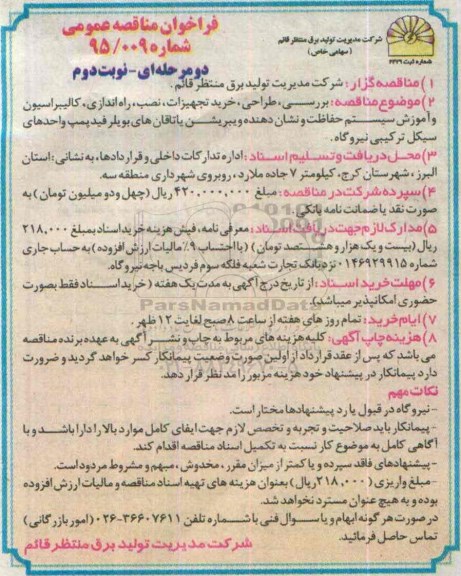 فراخوان مناقصه عمومی
شماره ۹۵/۰۰۹
دو مرحله‌ای - نوبت دوم
شرکت مدیریت تولید برق منتظر قائم
(سهامی خاص)
شماره ثبت ۶۲۲۹
۱) مناقصه گزار: شرکت مدیریت تولید برق منتظر قائم.
۲) موضوع مناقصه: بررسی، طراحی، خرید تجهیزات، نصب، راه اندازی، کالیبراسیون
و آموزش سیستم حفاظت و نشان دهنده ویبریشن یاتاقان های بویلر فید پمپ واحدهای
سیکل ترکیبی نیروگاه.
۳) محل دریافت و تسلیم اسناد: اداره تدارکات داخلی و قراردادها، به نشانی: استان
البرز، شهرستان کرج، کیلومتر ۷ جاده ملارد، روبروی شهرداری منطقه سه.
۴) سپرده شرکت در مناقصه: مبلغ ۴۲۰,۰۰۰,۰۰۰ ریال (چهل و دو میلیون تومان) به
صورت نقد یا ضمانت نامه بانکی
۵) مدارک لازم جهت دریافت اسناد: معرفی نامه، فیش هزینه خرید اسناد بمبلغ ۲۱۸,۰۰۰
ریال (بیست و یک هزار و هشتصد تومان) (با احتساب ۹٪ مالیات ارزش افزوده) به حساب جاری
شماره ۰۱۴۶۹۲۹۹۱۵ نزد بانک تجارت شعبه فلکه سوم فردیس باجه نیروگاه.
۶) مهلت خرید اسناد: از تاریخ درج آگهی به مدت یک هفته (خرید اسناد فقط بصورت
حضوری امکانپذیر میباشد).
۷) ایام خرید: تمام روز های هفته از ساعت ۸ صبح لغایت ۱۲ ظهر.
۸) هزینه چاپ آگهی: کلیه هزینه های مربوط به چاپ و نشر آگهی به عهده برنده مناقصه
می باشد که پس از عقد قرارداد از اولین صورت وضعیت پیمانکار کسر خواهد گردید و ضرورت
دارد پیمانکار در پیشنهاد خود هزینه مزبور را مد نظر قرار دهد.
نکات مهم
- نیروگاه در قبول یا رد پیشنهادها مختار است.
- پیمانکار باید صلاحیت و تجربه و تخصص لازم جهت ایفای کامل موارد بالا را دارا باشد و با
آگاهی کامل به موضوع کار نسبت به تکمیل اسناد مناقصه اقدام کند.
- پیشنهادهای فاقد سپرده و یا کمتر از میزان مقرر، مخدوش، مبهم و مشروط مردود است.
- مبلغ واریزی (۲۱۸,۰۰۰ ریال) بعنوان هزینه های تهیه اسناد مناقصه و مالیات ارزش افزوده
بوده و به هیچ عنوان مسترد نخواهد شد.
در صورت هر گونه ابهام و یا سوال فنی با شماره تلفن ۳۶۶۰۷۶۱۱-۰۲۶ (امور بازرگانی)
تماس حاصل فرمائید.
شرکت مدیریت تولید برق منتظر قائم